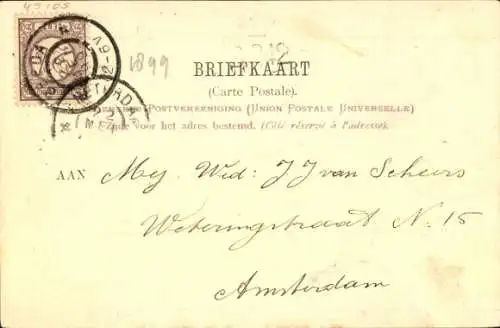 45105
1899
BRIEFKAART
(Carte Postale).
POSTVEREENIGING (UNION POSTALE UNIVERSELLE)
Zijde voor het adres bestemd. (Côté réservé à l'adresse).
AAN Mej. Wed: J J van Scheers
Weteringstraat N. 15
Amsterdam